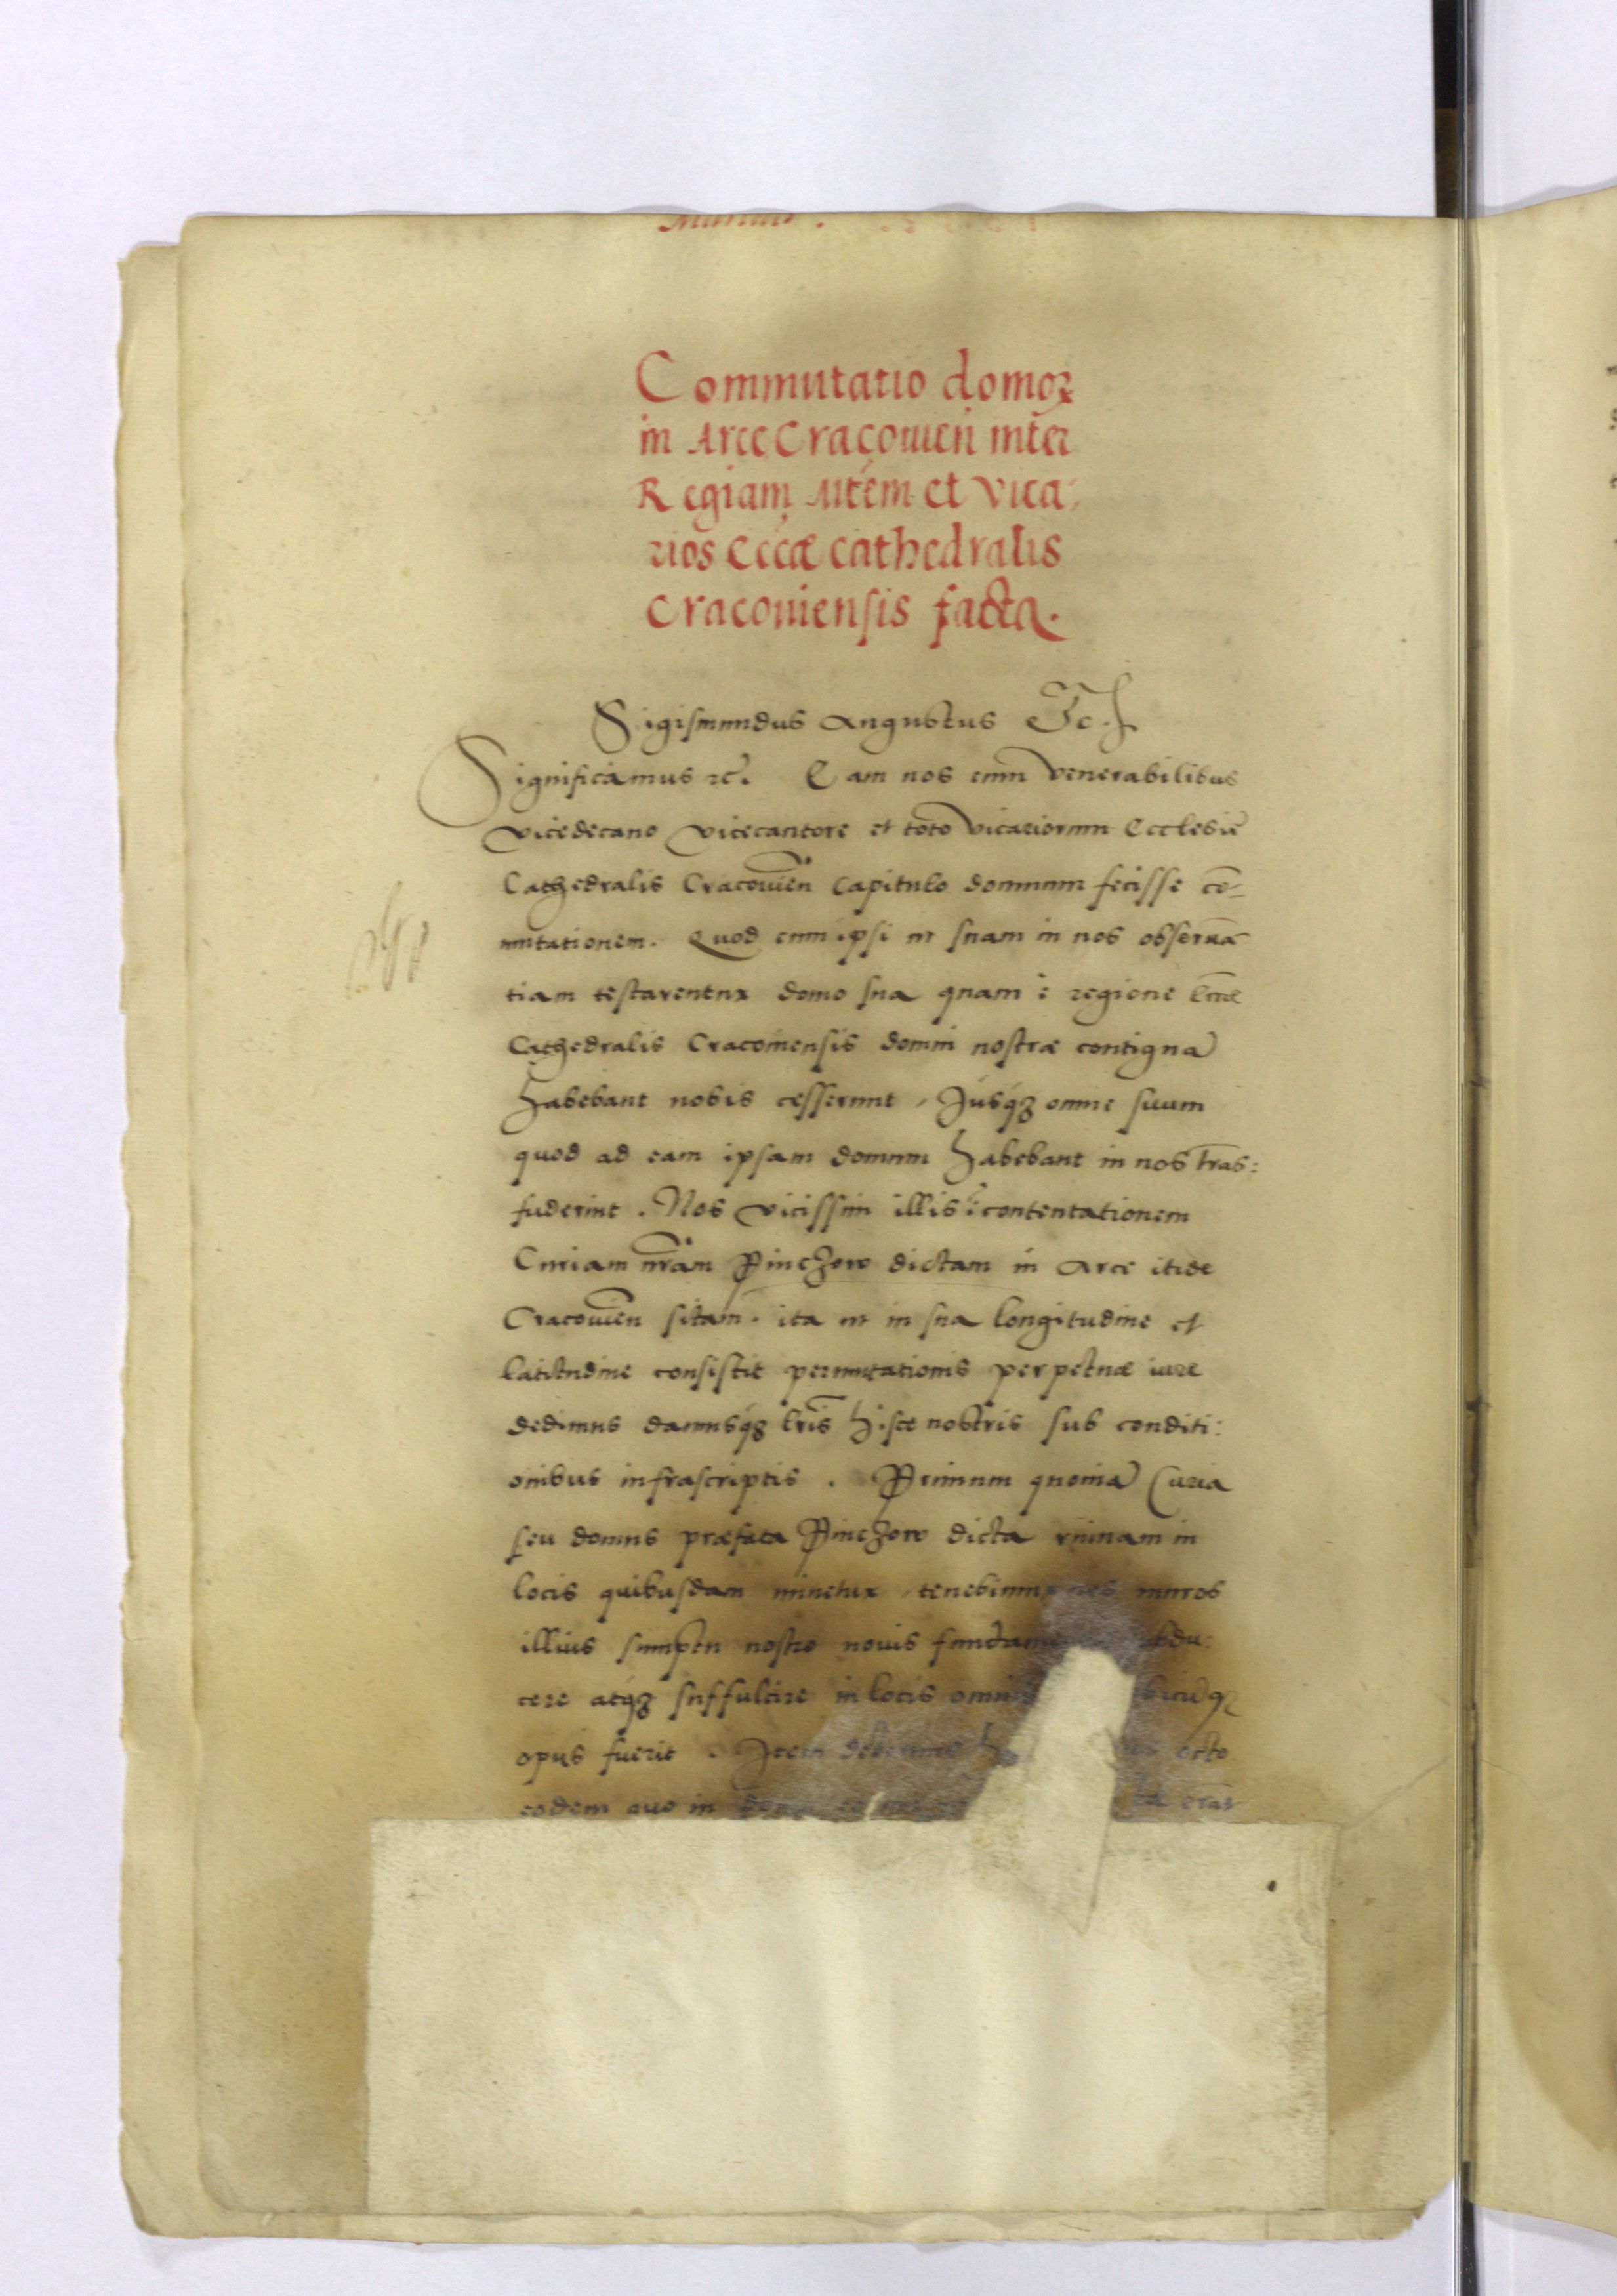 Commutatio domoꝝ
in Arce Cracouien̄ inter
Regiam Mtem et vica-
rios Eccæ cathedralis
Cracouiensis facta.
Sigismundus Augustus &c.
Significamus &c. Eam nos cum venerabilibus
vicedecano vicecantore et toto vicariorum Ecclesiæ
Cathedralis Cracouien̄ Capitulo domuum fecisse cō-
mutationem. Quod cum ipsi ut suam in nos obseruā
tiam testarentur domo sua quam è regione Eccæ
Cathedralis Cracouiensis domui nostræ contiguā
habebant nobis cesserunt, Jusqꝫ omne suum
quod ad eam ipsam domum habebant in nos trās:
fuderint. Nos vicissim illis ī contentationem
Curiam nr̄am Pinczow dictam in Arce itidē
Cracouien̄ sitam. ita ut in sua longitudine et
latitudine consistit permutationis perpetuæ iure
dedimus damusqꝫ lr̄is hisce nostris sub conditi:
onibus infrascriptis. Primum quoniā Curia
seu domus præfata Pinczow dicta ruinam in
locis quibusdam minetur, tenebimur nos muros
illius sumptu nostro nouis abdu:
cere atqꝫ suffulcire in locis
opus fuerit. Item octo
eodem quo in erat